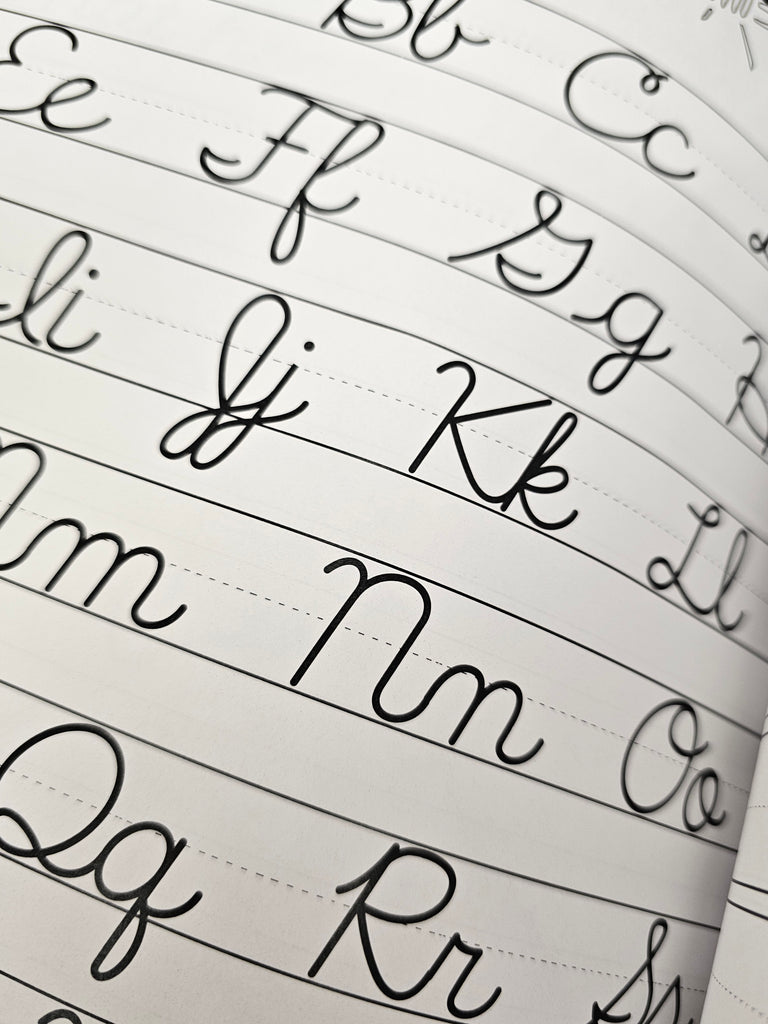 Bb Cc
Ee Ff Gg
Ii Jj Kk Ll
Mm Nn Oo
Qq Rr Ss